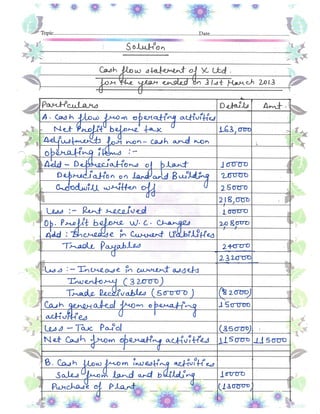 Topic Date
Solution
Cash flow statement of X Ltd.
for the year ended on 31st March 2013
Particulars Details Amt.
A. Cash flow from operating activities
Net Profit before tax 163,000
Adjustments for non-cash and non
operating items :-
Add - Depreciations of plant 10000
Depreciation on land and Building 20000
Goodwill written off 25000
218,000
Less :- Rent received 10000
Op. Profit before W.C. Changes 208,000
Add : Increase in Current Liabilities
Trade Payables 24000
232000
Less :- Increase in current assets
Inventory (32000)
Trade Receivables (50000) (82000)
Cash generated from operating 150000
activities
Less - Tax Paid (35000)
Net Cash from operating activities 115000 115000
B. Cash flow from investing activities
Sales from land and building 10000
Purchase of Plant